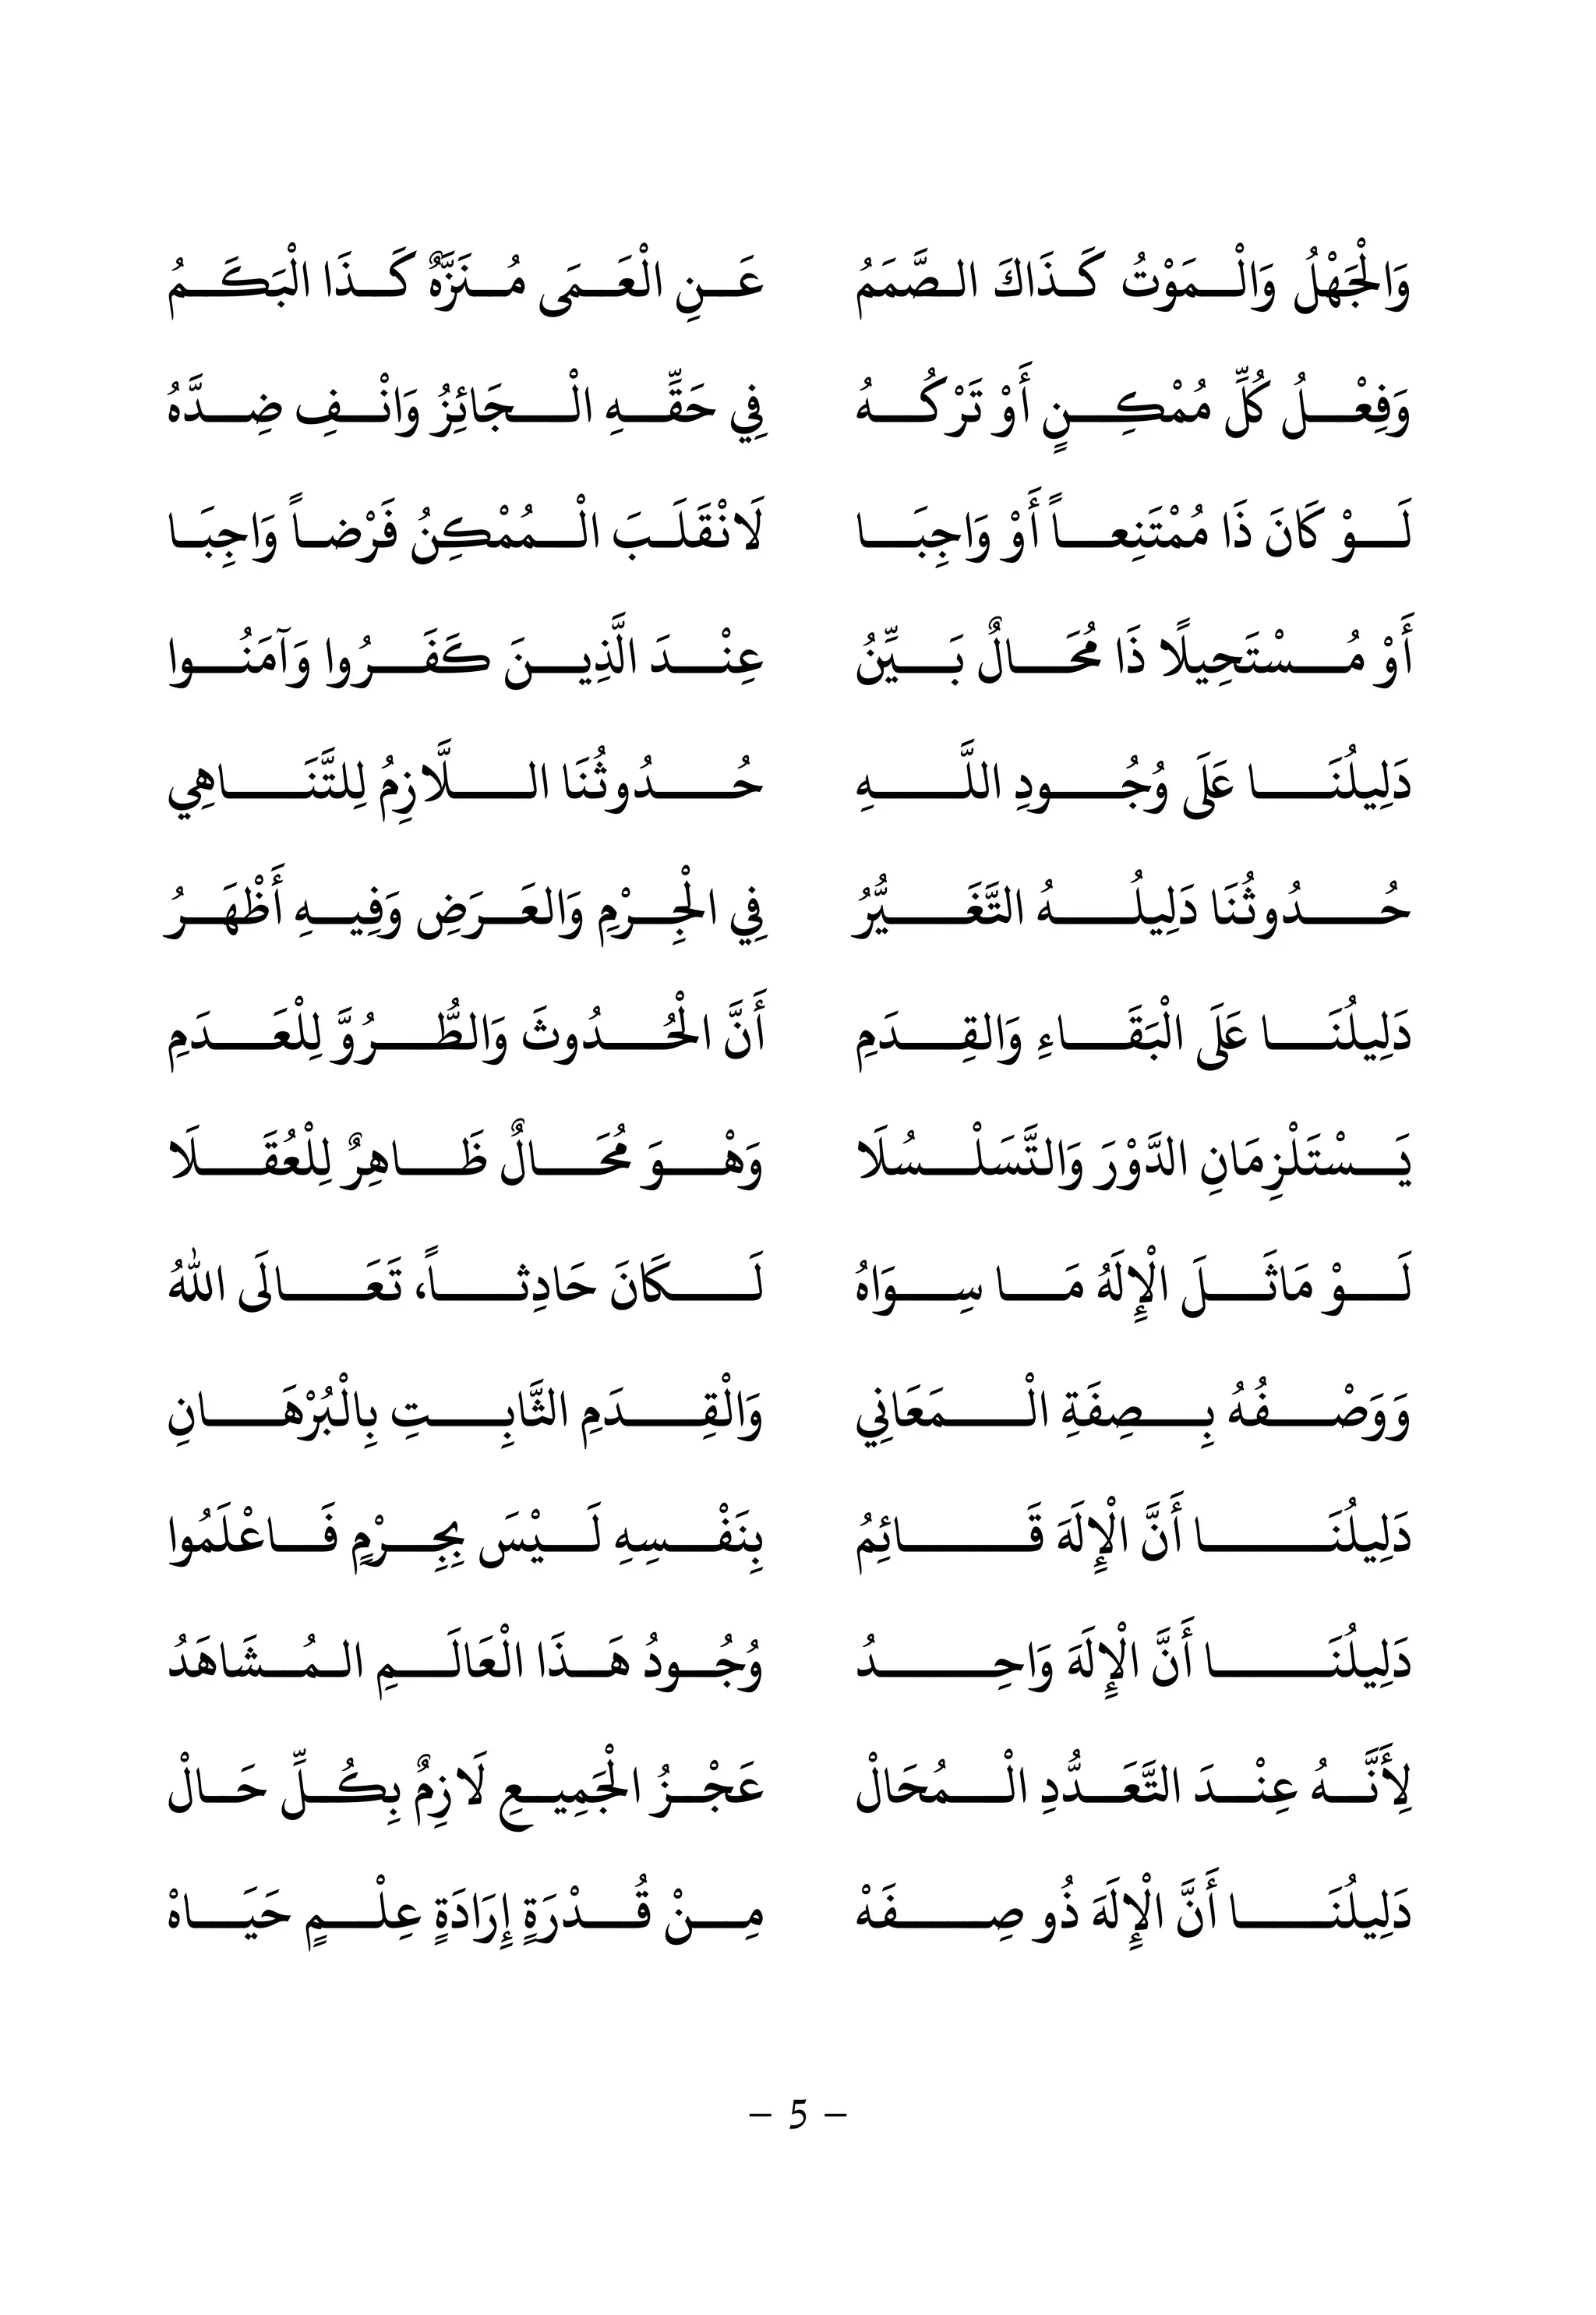 وَالْجَهْلُ وَالْمَوْتُ كَذَاكَ الصَّمَمُ عَنِ الْعَمَى مُنَزَّهٌ كَذَا الْبَكَمُ
وَفِعْلُ كُلِّ مُمْكِنٍ أَوْ تَرْكُهُ فِي حَقِّهِ الْجَائِزُ وَانْفِ ضِدَّهُ
لَوْ كَانَ ذَا مُمْتَنِعاً أَوْ وَاجِبَا لَانْقَلَبَ الْمُمْكِنُ فَرْضاً وَاجِبَا
أَوْ مُسْتَحِيلًا ذَا مُحَالٌ بَيِّنُ عِنْدَ الَّذِينَ كَفَرُوا وَآمَنُوا
دَلِيلُنَا عَلَى وُجُودِ اللَّهِ حُدُوثُنَا اللَّازِمُ لِلتَّنَاهِي
حُدُوثُنَا دَلِيلُهُ التَّغَيُّرُ فِي الْجِرْمِ وَالعَرَضِ وَفِيهِ أَظْهَرُ
دَلِيلُنَا عَلَى الْبَقَاءِ وَالقِدَمِ أَنَّ الْحُدُوثَ وَالطُّرُوَّ لِلْعَدَمِ
يَسْتَلْزِمَانِ الدَّوْرَ وَالتَّسَلْسُلَا وَهْوَ مُحَالٌ ظَاهِرٌ لِلْعُقَلَا
لَوْ مَاثَلَ الْإِلَهُ مَا سِوَاهُ لَكَانَ حَادِثاً، تَعَالَى اللهُ
وَوَصْفُهُ بِصِفَةِ الْمَعَانِي وَالْقِدَمِ الثَّابِتِ بِالْبُرْهَانِ
دَلِيلُنَا أَنَّ الْإِلَهَ قَائِمُ بِنَفْسِهِ لَيْسَ بِجِرْمٍ فَاعْلَمُوا
دَلِيلُنَا أَنَّ الْإِلَهَ وَاحِدُ وُجُودُ هَذَا الْعَالَمِ المُشَاهَدُ
لِأَنَّهُ عِنْدَ التَّعَدُّدِ الْمُحَالْ عَجْزُ الْجَمِيعِ لَازِمٌ بِكُلِّ حَالْ
دَلِيلُنَا أَنَّ الْإِلَهَ ذُو صِفَهْ مِنْ قُدْرَةٍ إِرَادَةٍ عِلْمٍ حَيَاهْ
– 5 –